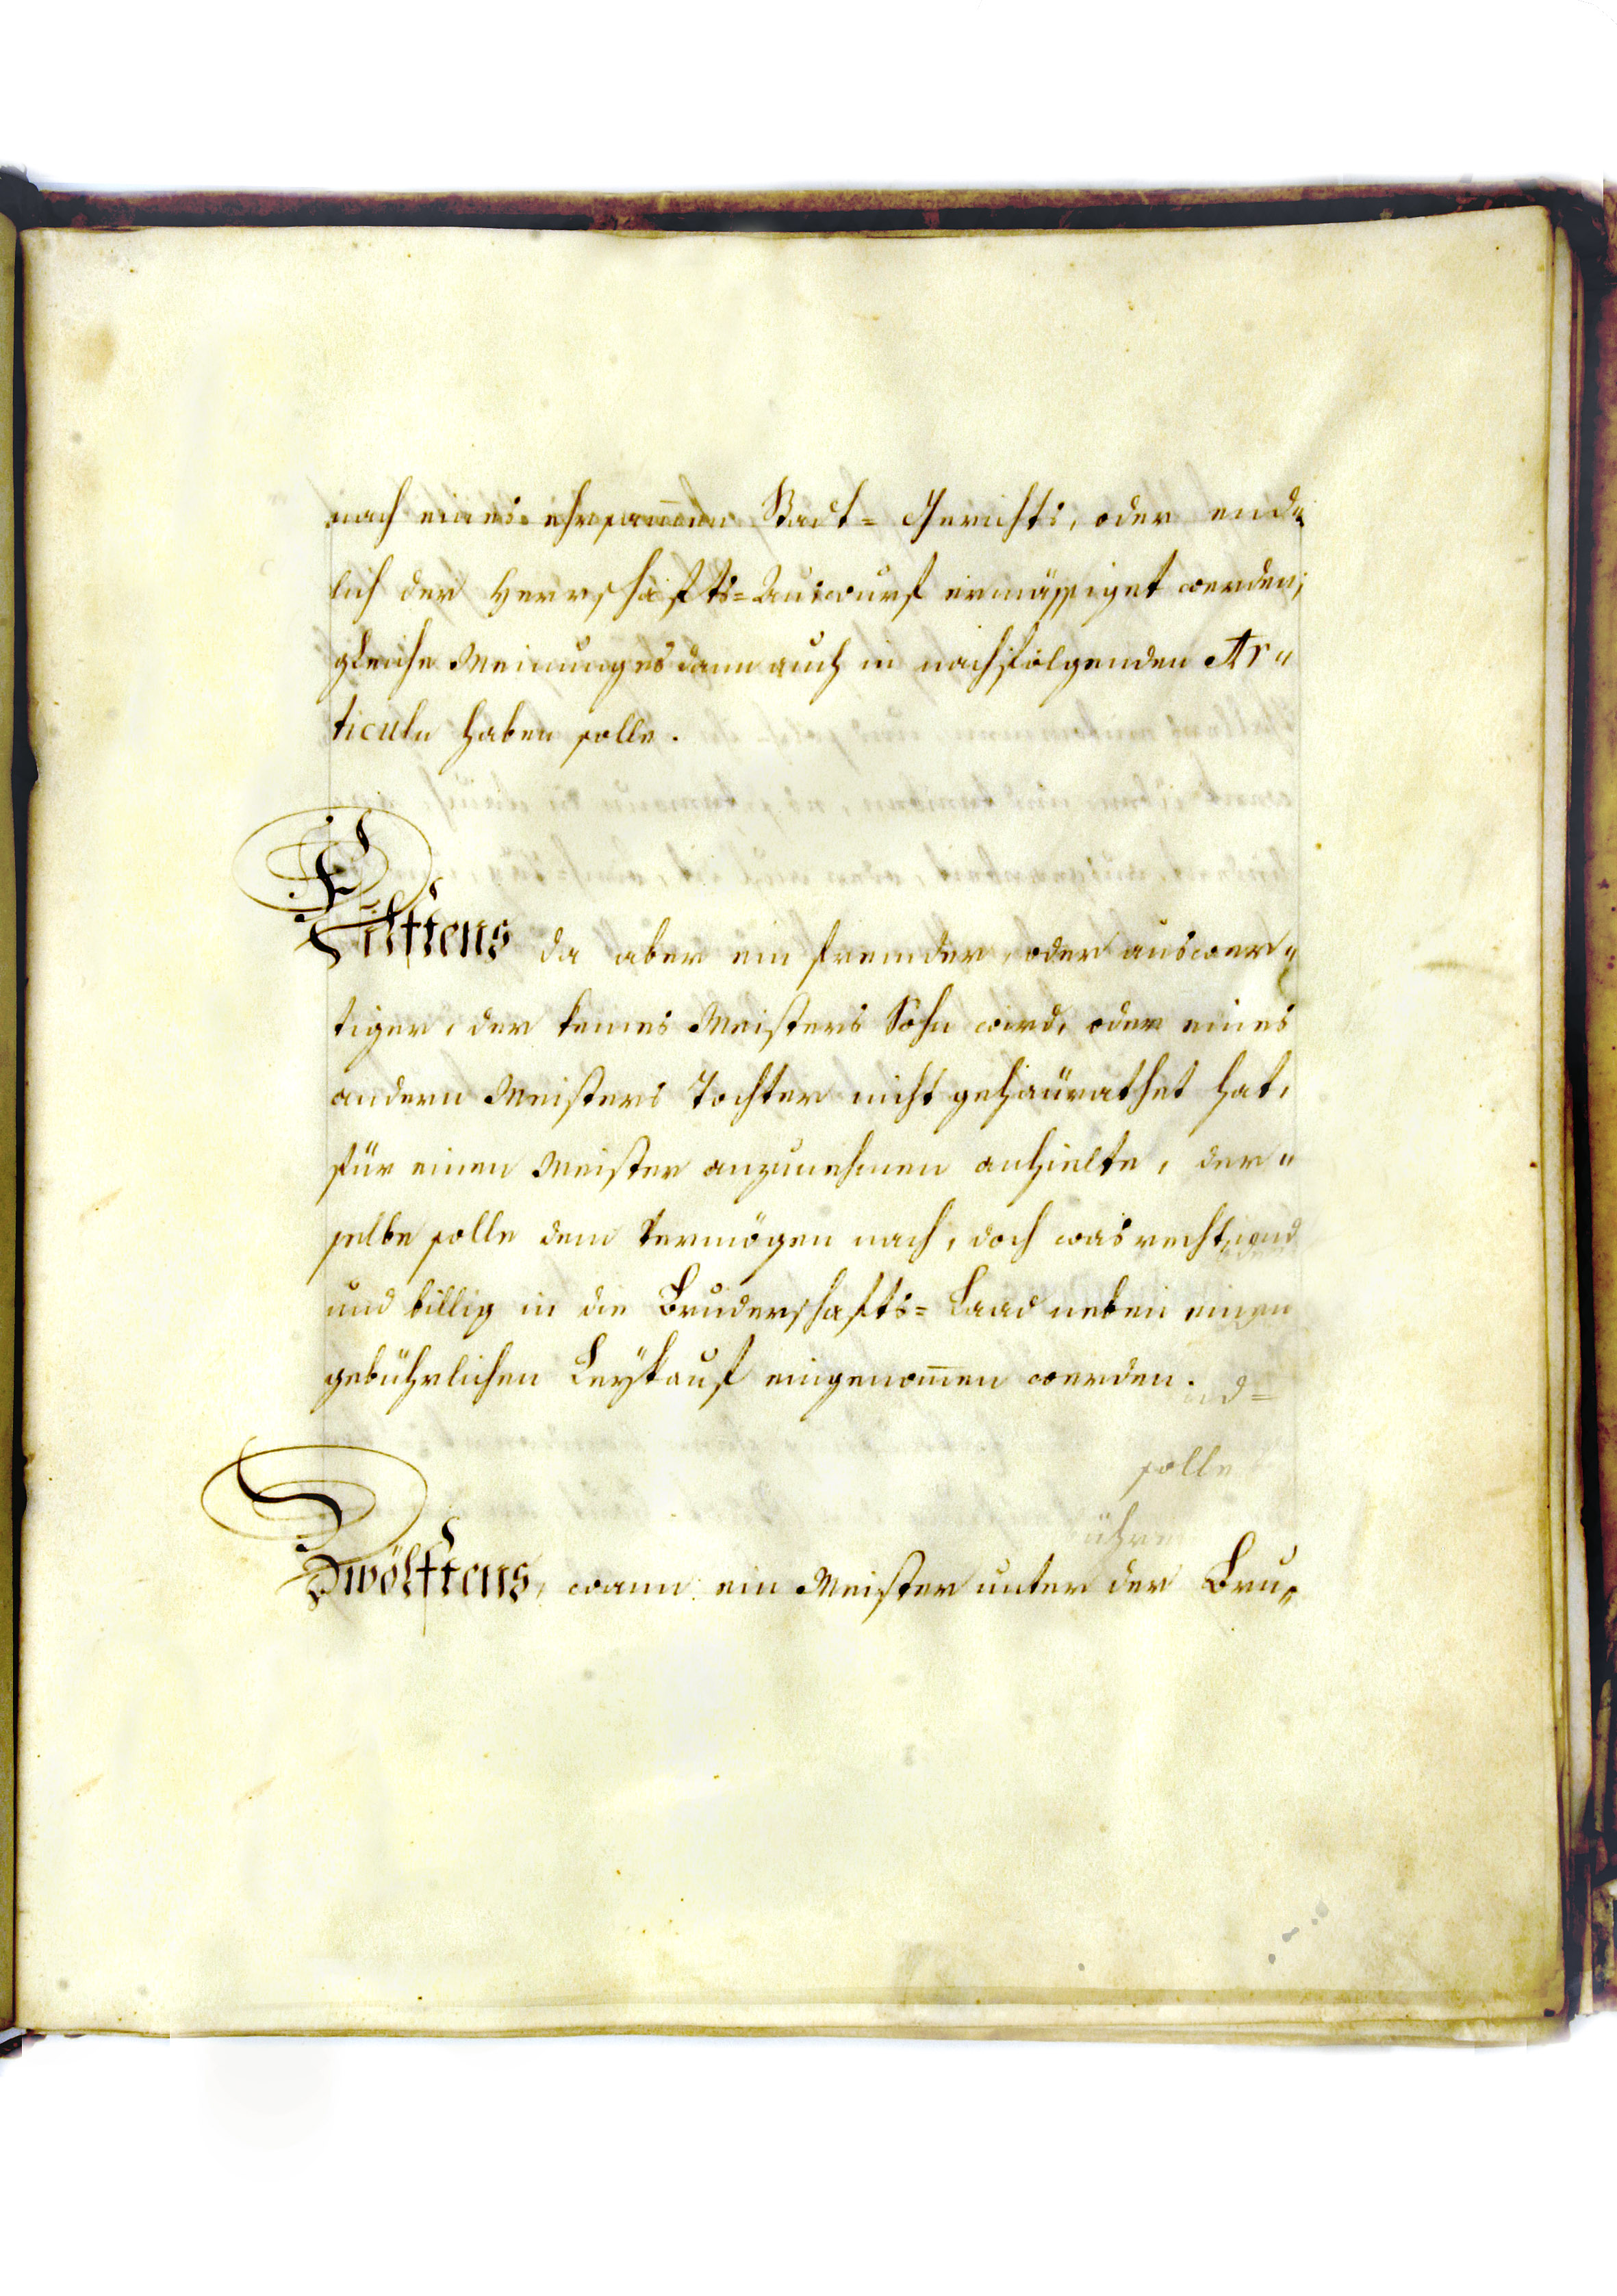 nach eines ehrsammen Stadt= Gerichts, oder end=
lich der Herrschafts=Auswurf ermässiget werden,
gleiche Meinung es dann auch in nachfolgenden Ar„
ticuln haben solle.
Eilftens da aber ein fremder, oder auswer„
tiger, der keines Meisters Sohn wird, oder eines
andern Meisters Tochter nicht gehäurathet hat,
für einen Meister anzunehmen anhielte, der„
selbe solle dem Vermögen nach, doch was recht
und billig in die Bruderschafts= Laad neben einen
gebührlichen Leykauf eingenom̅en werden.
solle
Zwölftens, wann ein Meister unter der Bru„